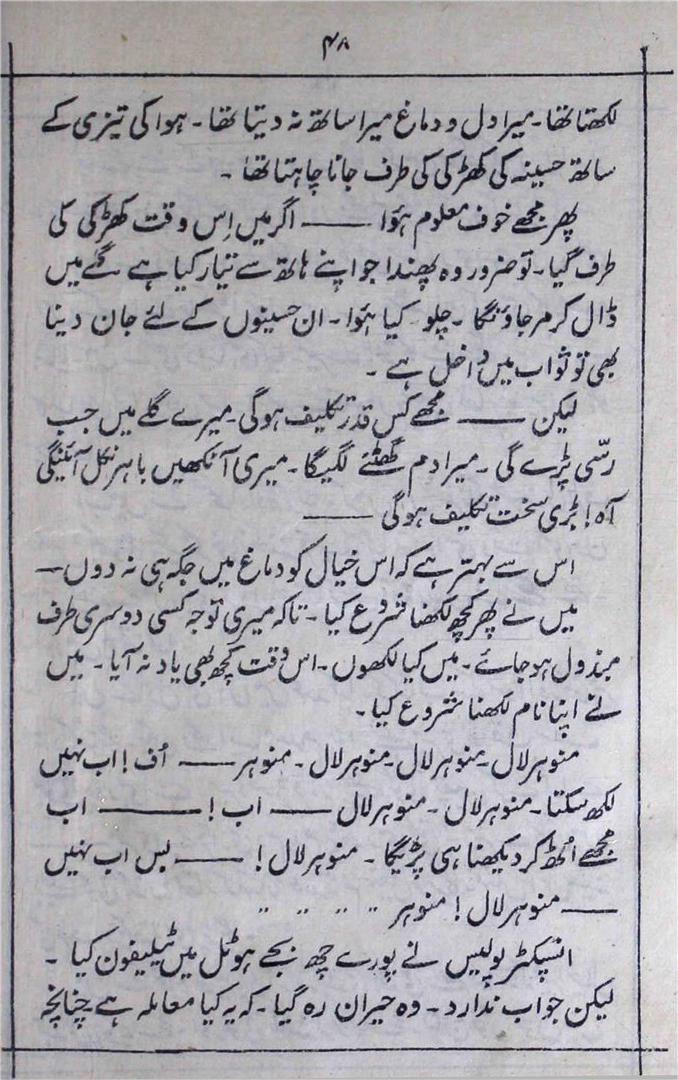 ۴۸
لکھتا تھا۔ میرا دل و دماغ میرا ساتھ نہ دیتا تھا۔ ہوا کی تیزی کے
ساتھ حسینہ کی کھڑکی کی طرف جانا چاہتا تھا۔
پھر مجھے خوف معلوم ہؤا —— اگر میں اِس وقت کھڑکی کی
طرف گیا۔ تو ضرور وہ پھندا جو اپنے ہاتھ سے تیار کیا ہے گلے میں
ڈال کر مر جاؤنگا۔ چلو۔ کیا ہؤا۔ ان حسینوں کے لئے جان دینا
بھی تو ثواب میں داخل ہے۔
لیکن —— مجھے کس قدر تکلیف ہوگی۔ میرے گلے میں جب
رسّی پڑے گی۔ میرا دم گھٹنے لگیگا۔ میری آنکھیں باہر نکل آئینگی
آہ! بڑی سخت تکلیف ہوگی ——
اس سے بہتر ہے کہ اس خیال کو دماغ میں جگہ ہی نہ دوں —
میں نے پھر کچھ لکھنا شروع کیا۔ تاکہ میری توجہ کسی دوسری طرف
مبذول ہو جائے۔ میں کیا لکھوں۔ اس وقت کچھ بھی یاد نہ آیا۔ میں
نے اپنا نام لکھنا شروع کیا۔
منوہر لال۔ منوہر لال۔ منوہر لال۔ منوہر —— اُف! اب نہیں
لکھ سکتا۔ منوہر لال۔ منوہر لال —— اب! —— اب
مجھے اُٹھ کر دیکھنا ہی پڑیگا۔ منوہر لال! —— بس اب نہیں
—— منوہر لال! منوہر ۔۔ ۔۔ ۔۔ ۔۔
انسپکٹر پولیس نے پورے چھ بجے ہوٹل میں ٹیلیفون کیا۔
لیکن جواب ندارد۔ وہ حیران رہ گیا۔ کہ یہ کیا معاملہ ہے۔ چنانچہ